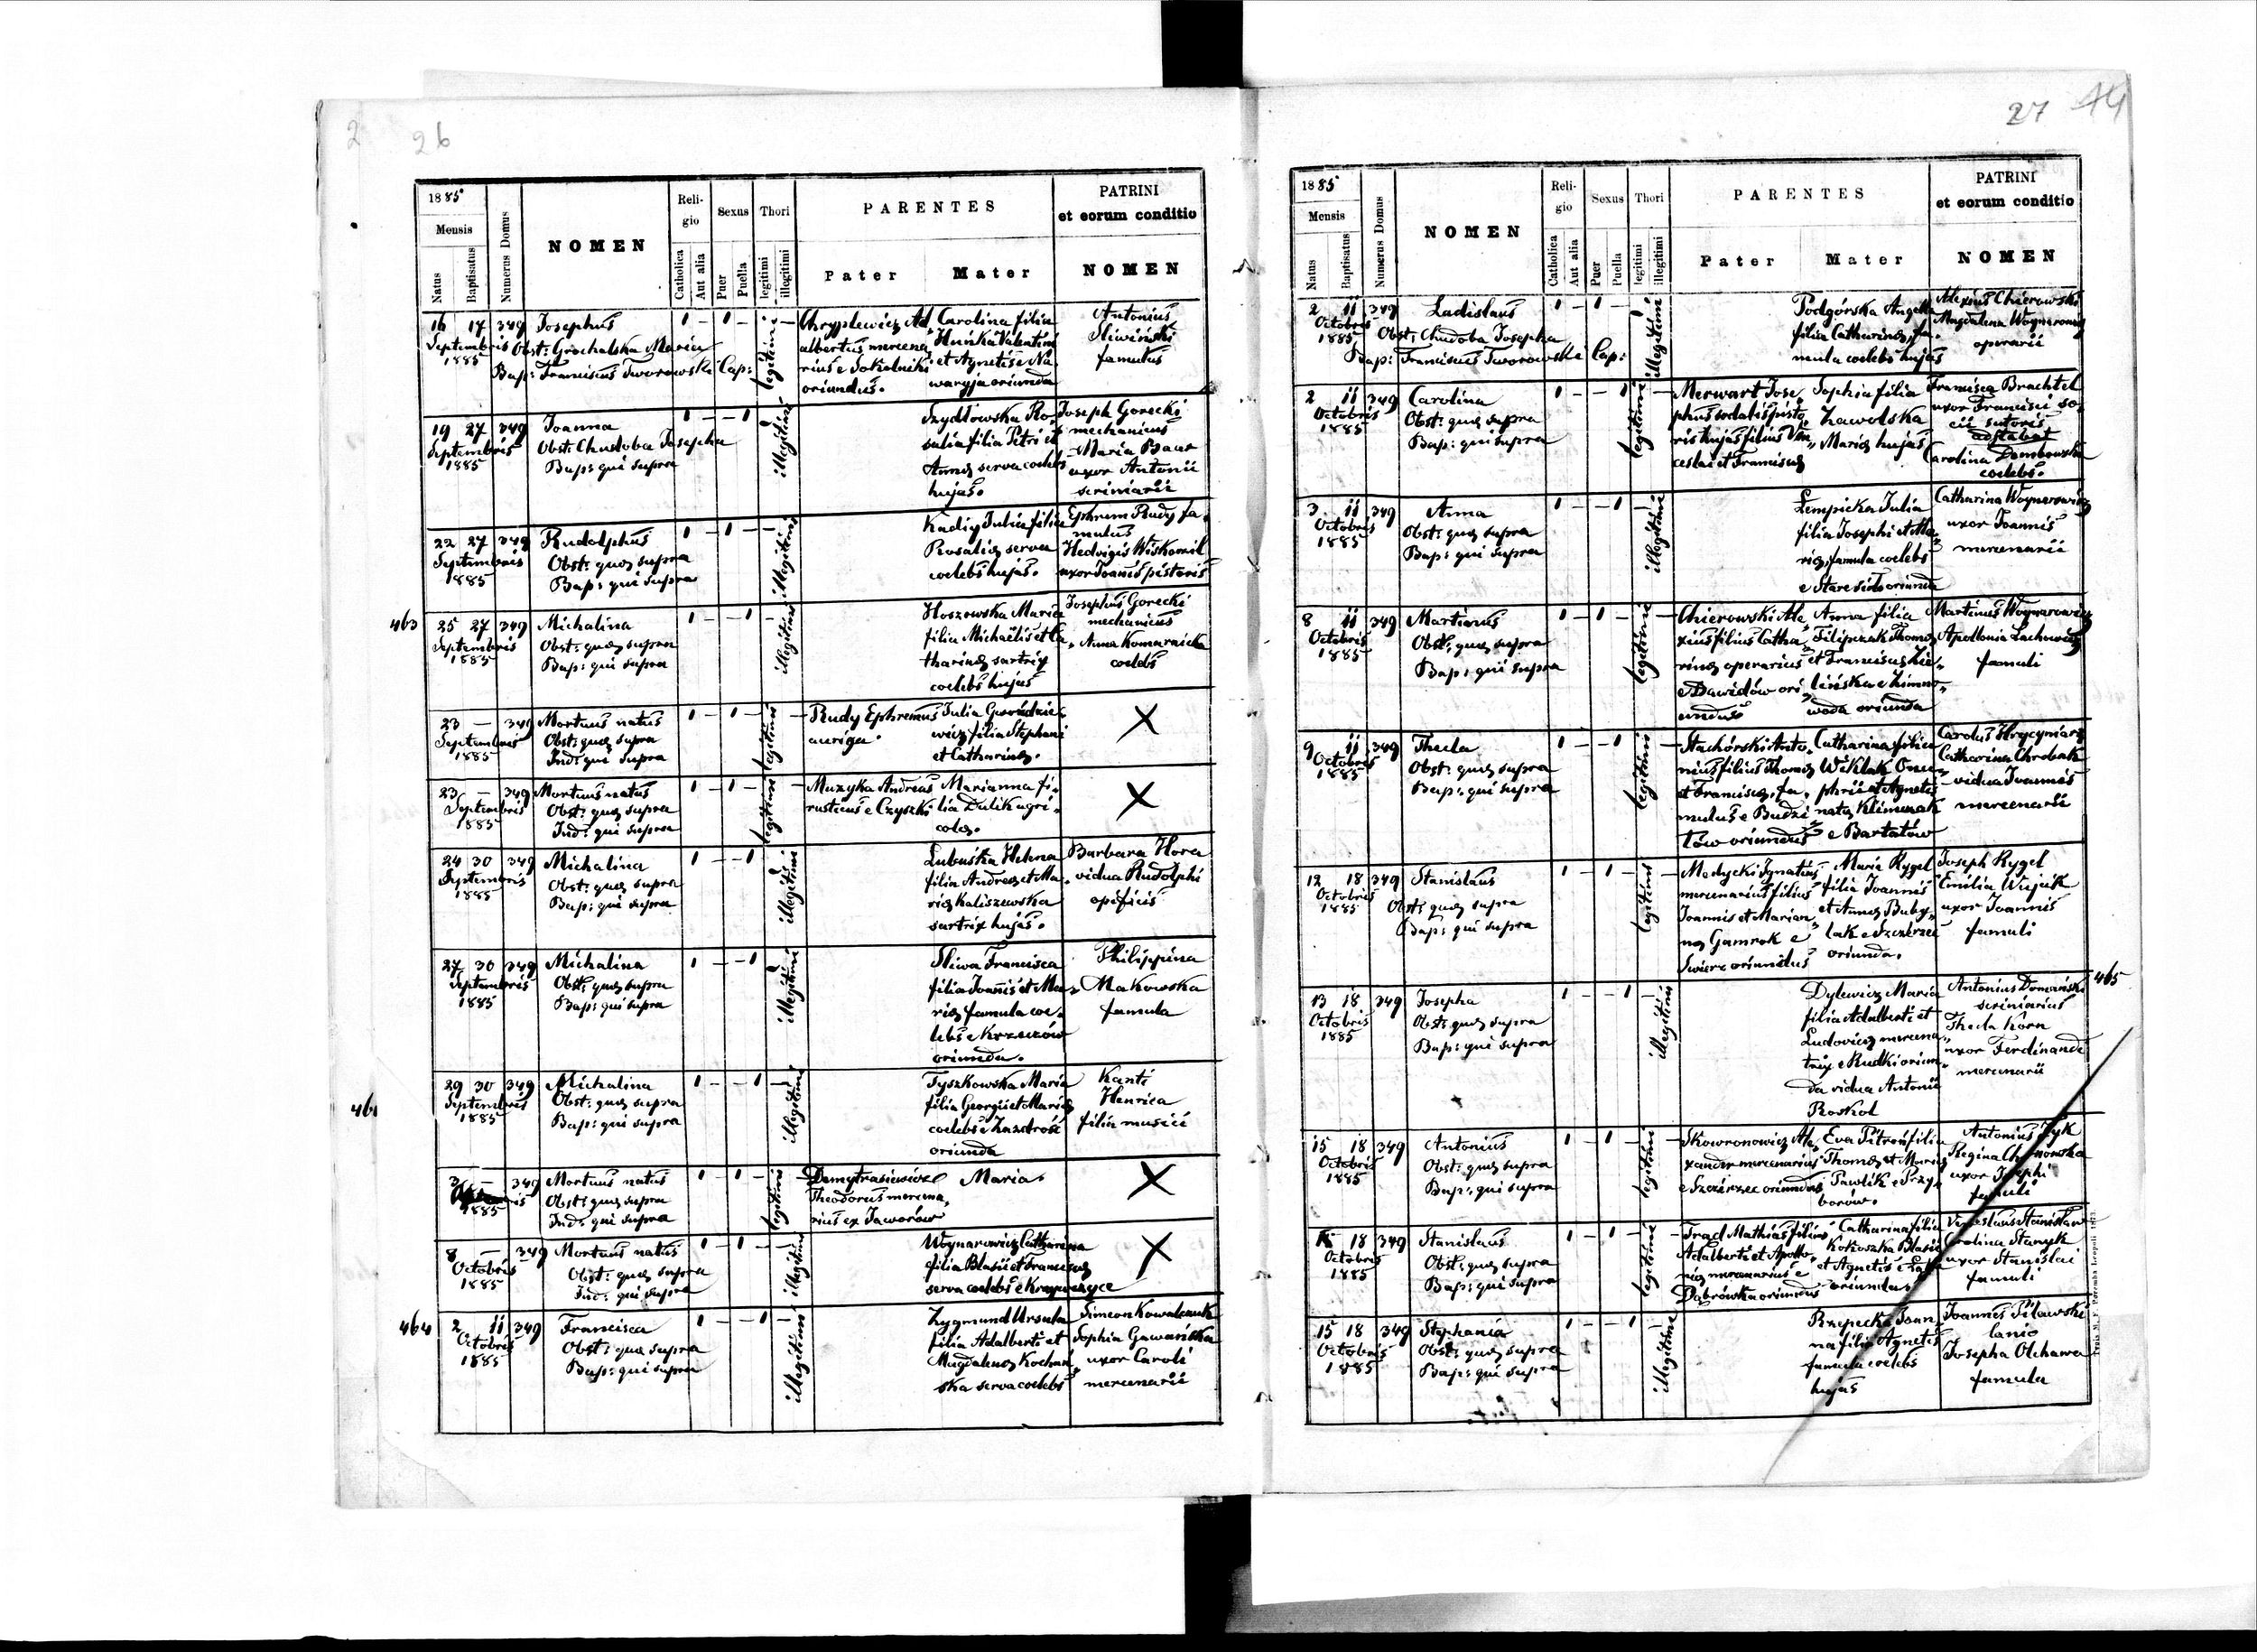 2 26
1885
Mensis
Natus
Baptisatus
Numerus Domus
NOMEN
Religio
Catholica
Aut alia
Sexus
Puer
Puella
Thori
legitimi
illegitimi
PARENTES
Pater
Mater
PATRINI
et eorum conditio
NOMEN
16 17 349 Josephus 1 – 1 – legitimi Chryplewicz Ad„ Carolina filia Antonius
Septembris Obst: Grochalska Maria albertus mercena„ Huńka Valentini Śliwiński
1885 Bap: Franciscus Tworowski Cap: rius e Sokolniki et Agnetis e Na„ famulus
oriundus. waryja oriunda
19 27 349 Joanna 1 – – 1 illegitimi Szydłowska Ro„ Joseph Gorecki
Septembris Obst: Chudoba Josepha salia filia Petri et mechanicus
1885 Bap: qui supra Annæ serva coelebs Maria Baur
hujas. uxor Antonii
scriniarii
22 27 349 Rudolphus 1 – 1 – illegitimi Kadiy Julia filia Ephrem Rudy fa„
Septembris Obst: quæ supra Rosaliæ serva mulus
1885 Bap: qui supra coelebs hujas. Hedvigis Wiskozil
uxor Joannis pistoris
463 25 27 349 Michalina 1 – – 1 illegitimi Hoszowska Maria Josephus Gorecki
Septembris Obst: quæ supra filia Michaëlis et Ca„ mechanicus
1885 Bap: qui supra tharinæ sartrix Anna Komarnicka
coelebs hujas coelebs
23 – 349 Mortuus natus 1 – 1 – legitimi Rudy Ephremus Julia Gwoździe„
Septembris Obst: quæ supra auriga. wicz filia Stephani
1885 Ind: qui supra et Catharinæ.
23 – 349 Mortuus natus 1 – 1 – legitimi Muzyka Andreas Marianna fi„
Septembris Obst: quæ supra rusticus e Czyszki lia Dulik agri„
1885 Ind: qui supra colæ.
24 30 349 Michalina 1 – – 1 illegitimi Lubuśka Helena Barbara Hora
Septembris Obst: quæ supra filia Andreæ et Ma„ vidua Rudolphi
1885 Bap: qui supra riæ Kaliszewska opificis
sartrix hujas.
27 30 349 Michalina 1 – – 1 illegitimi Śliwa Francisca Philippina
Septembris Obst: quæ supra filia Joannis et Ma„ Makowska
1885 Bap: qui supra riæ famula coe„ famula
lebs e Krzeczów
oriunda.
461 29 30 349 Michalina 1 – – 1 illegitimi Tyszkowska Maria Kanti
Septembris Obst: quæ supra filia Georgii et Mariæ Henrica
1885 Bap: qui supra coelebs e Zazdrość filia musici
oriunda
3 – 349 Mortuus natus 1 – 1 – legitimi Demytrasiewicz Maria
1885 Obst: quæ supra Theodorus mercena„
Ind: qui supra rius ex Jaworów
8 – 349 Mortuus natus 1 – 1 – illegitimi Woynarowicz Catharina
Octobris Obst: quæ supra filia Blasii et Franciscæ
1885 Ind: qui supra serva coelebs e Krzywczyce
464 2 11 349 Francisca 1 – – 1 illegitimi Zygmund Ursula Simeon Kowalczuk
Octobris Obst: quæ supra filia Adalberti et Sophia Gawańska
1885 Bap: qui supra Magdalenæ Kochań„ uxor Caroli
ska serva coelebs mercenarii
27 44
1885
Mensis
Natus
Baptisatus
Numerus Domus
NOMEN
Religio
Catholica
Aut alia
Sexus
Puer
Puella
Thori
legitimi
illegitimi
PARENTES
Pater
Mater
PATRINI
et eorum conditio
NOMEN
2 11 349 Ladislaus 1 – 1 – illegitimi Podgórska Angela Alexius Chierowski
Octobris Obst: Chudoba Josepha filia Catharinæ, fa„ Magdalena Woynarowicz
1885 Bap: Franciscus Tworowski Cap: mula coelebs hujas operarii
2 11 349 Carolina 1 – – 1 legitimi Merwart Jose„ Sophia filia Francisca Brachtel
Octobris Obst: quæ supra phus sodalis pisto„ Zawolska uxor Francisci so„
1885 Bap: qui supra ris hujas filius Ven„ Mariæ hujas cii sutoris
ceslai et Franciscæ adstabat
Carolina Dombowska
coelebs.
3 11 349 Anna 1 – – 1 illegitimi Lempicka Julia Catharina Woynarowicz
Octobris Obst: quæ supra filia Josephi et Ma„ uxor Joannis
1885 Bap: qui supra riæ, famula coelebs mercenarii
e Stare sioło oriunda
8 11 349 Martinus 1 – 1 – legitimi Chierowski Ale„ Anna filia Martinus Woynarowicz
Octobris Obst: quæ supra xius filius Catha„ Filipczak Thomæ Apollonia Lachowicz
1885 Bap: qui supra rinæ operarius et Franciscæ Zie„ famuli
e Dawidów ori„ lińska e Zimno„
undus woda oriunda
9 11 349 Thecla 1 – – 1 legitimi Stachórski Anto„ Catharina filia Carolus Hrycyniarz
Octobris Obst: quæ supra nius filius Thomæ Wéklak Onu„ Catharina Chrobak
1885 Bap: qui supra et Franciscæ, fa„ phrii et Agnetis vidua Joannis
mulus e Budzi„ natæ Klimczak mercenarii
tów oriundus e Bartatów
12 18 349 Stanislaus 1 – 1 – legitimi Medycki Ignatius Maria Rygel Joseph Rygel
Octobris Obst: quæ supra mercenarius filius filia Joannis Emilia Wujcik
1885 Bap: qui supra Joannis et Marian„ et Annæ Buby„ uxor Joannis
næ Gamrok e lak e Szczerzec famuli
Świerz oriundus oriunda.
465
13 18 349 Josepha 1 – – 1 illegitimi Dylewicz Maria Antonius Domański
Octobris Obst: quæ supra filia Adalberti et scriniarius
1885 Bap: qui supra Ludovicæ mercena„ Thecla Korn
trix e Rudki oriun„ uxor Ferdinandi
da vidua Antonii mercenarii
Roskol
15 18 349 Antonius 1 – 1 – legitimi Skowronowicz Ale„ Eva Pitreń filia Antonius Zyk
Octobris Obst: quæ supra xander mercenarius Thomæ et Mariæ Regina
1885 Bap: qui supra e Szczérzec oriundus Pawlik e Przy„ uxor Josephi
borów. famuli
18 349 Stanislaus 1 – 1 – legitimi Frąd Mathias filius Catharina filia Venceslaus Stanislav
Octobris Obst: quæ supra Adalberti et Apollo„ Kokoszka Blasii Carolina Stanyk
1885 Bap: qui supra niæ mercenarius e et Agnetis e uxor Stanislai
Dąbrówka oriundus oriundus famuli
15 18 349 Stephania 1 – – 1 illegitimi Rzepecka Joan„ Joannes Pilawski
Octobris Obst: quæ supra na filia Agnetis lanio
1885 Bap: qui supra famula coelebs Josepha Olchawa
hujas famula